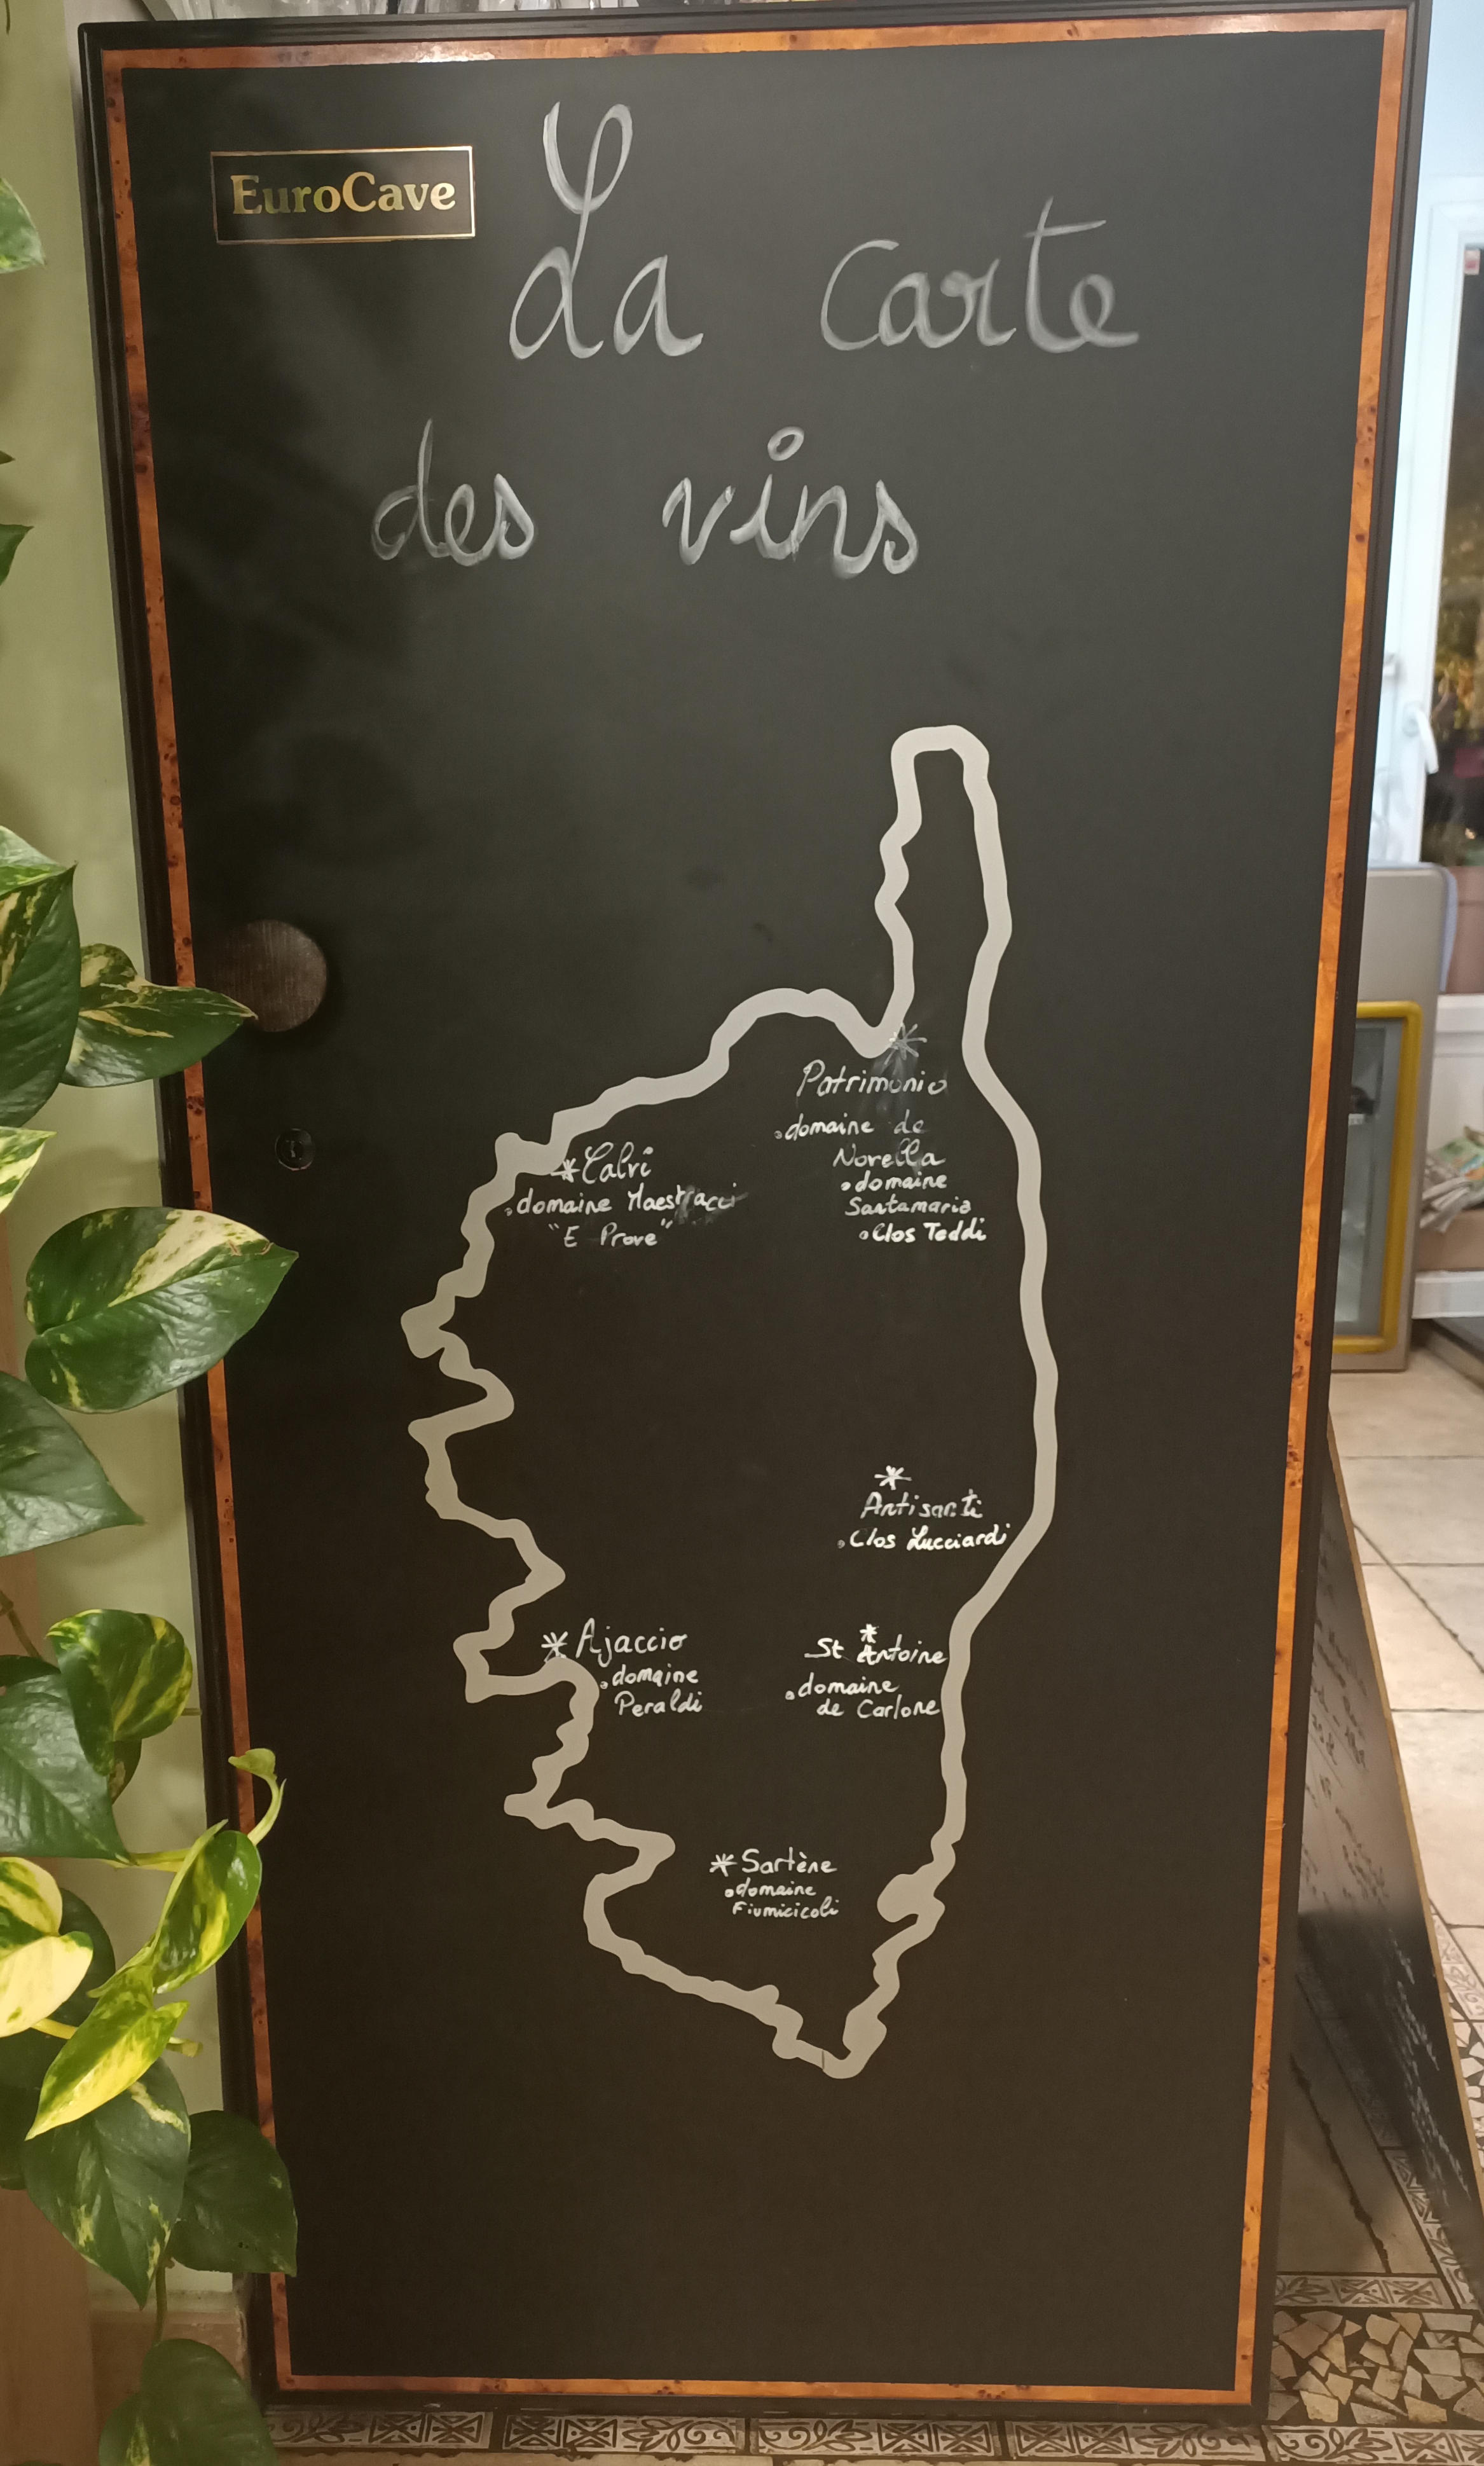 EuroCave
La carte
des vins
Patrimonio
domaine de
Norella
domaine
Santamaria
Clos Teddi
Calvi
domaine Maestracci
"E Prove"
Antisanti
Clos Lucciardi
Ajaccio
domaine
Peraldi
St Antoine
domaine
de Carlone
Sartène
domaine
Fiumicicoli